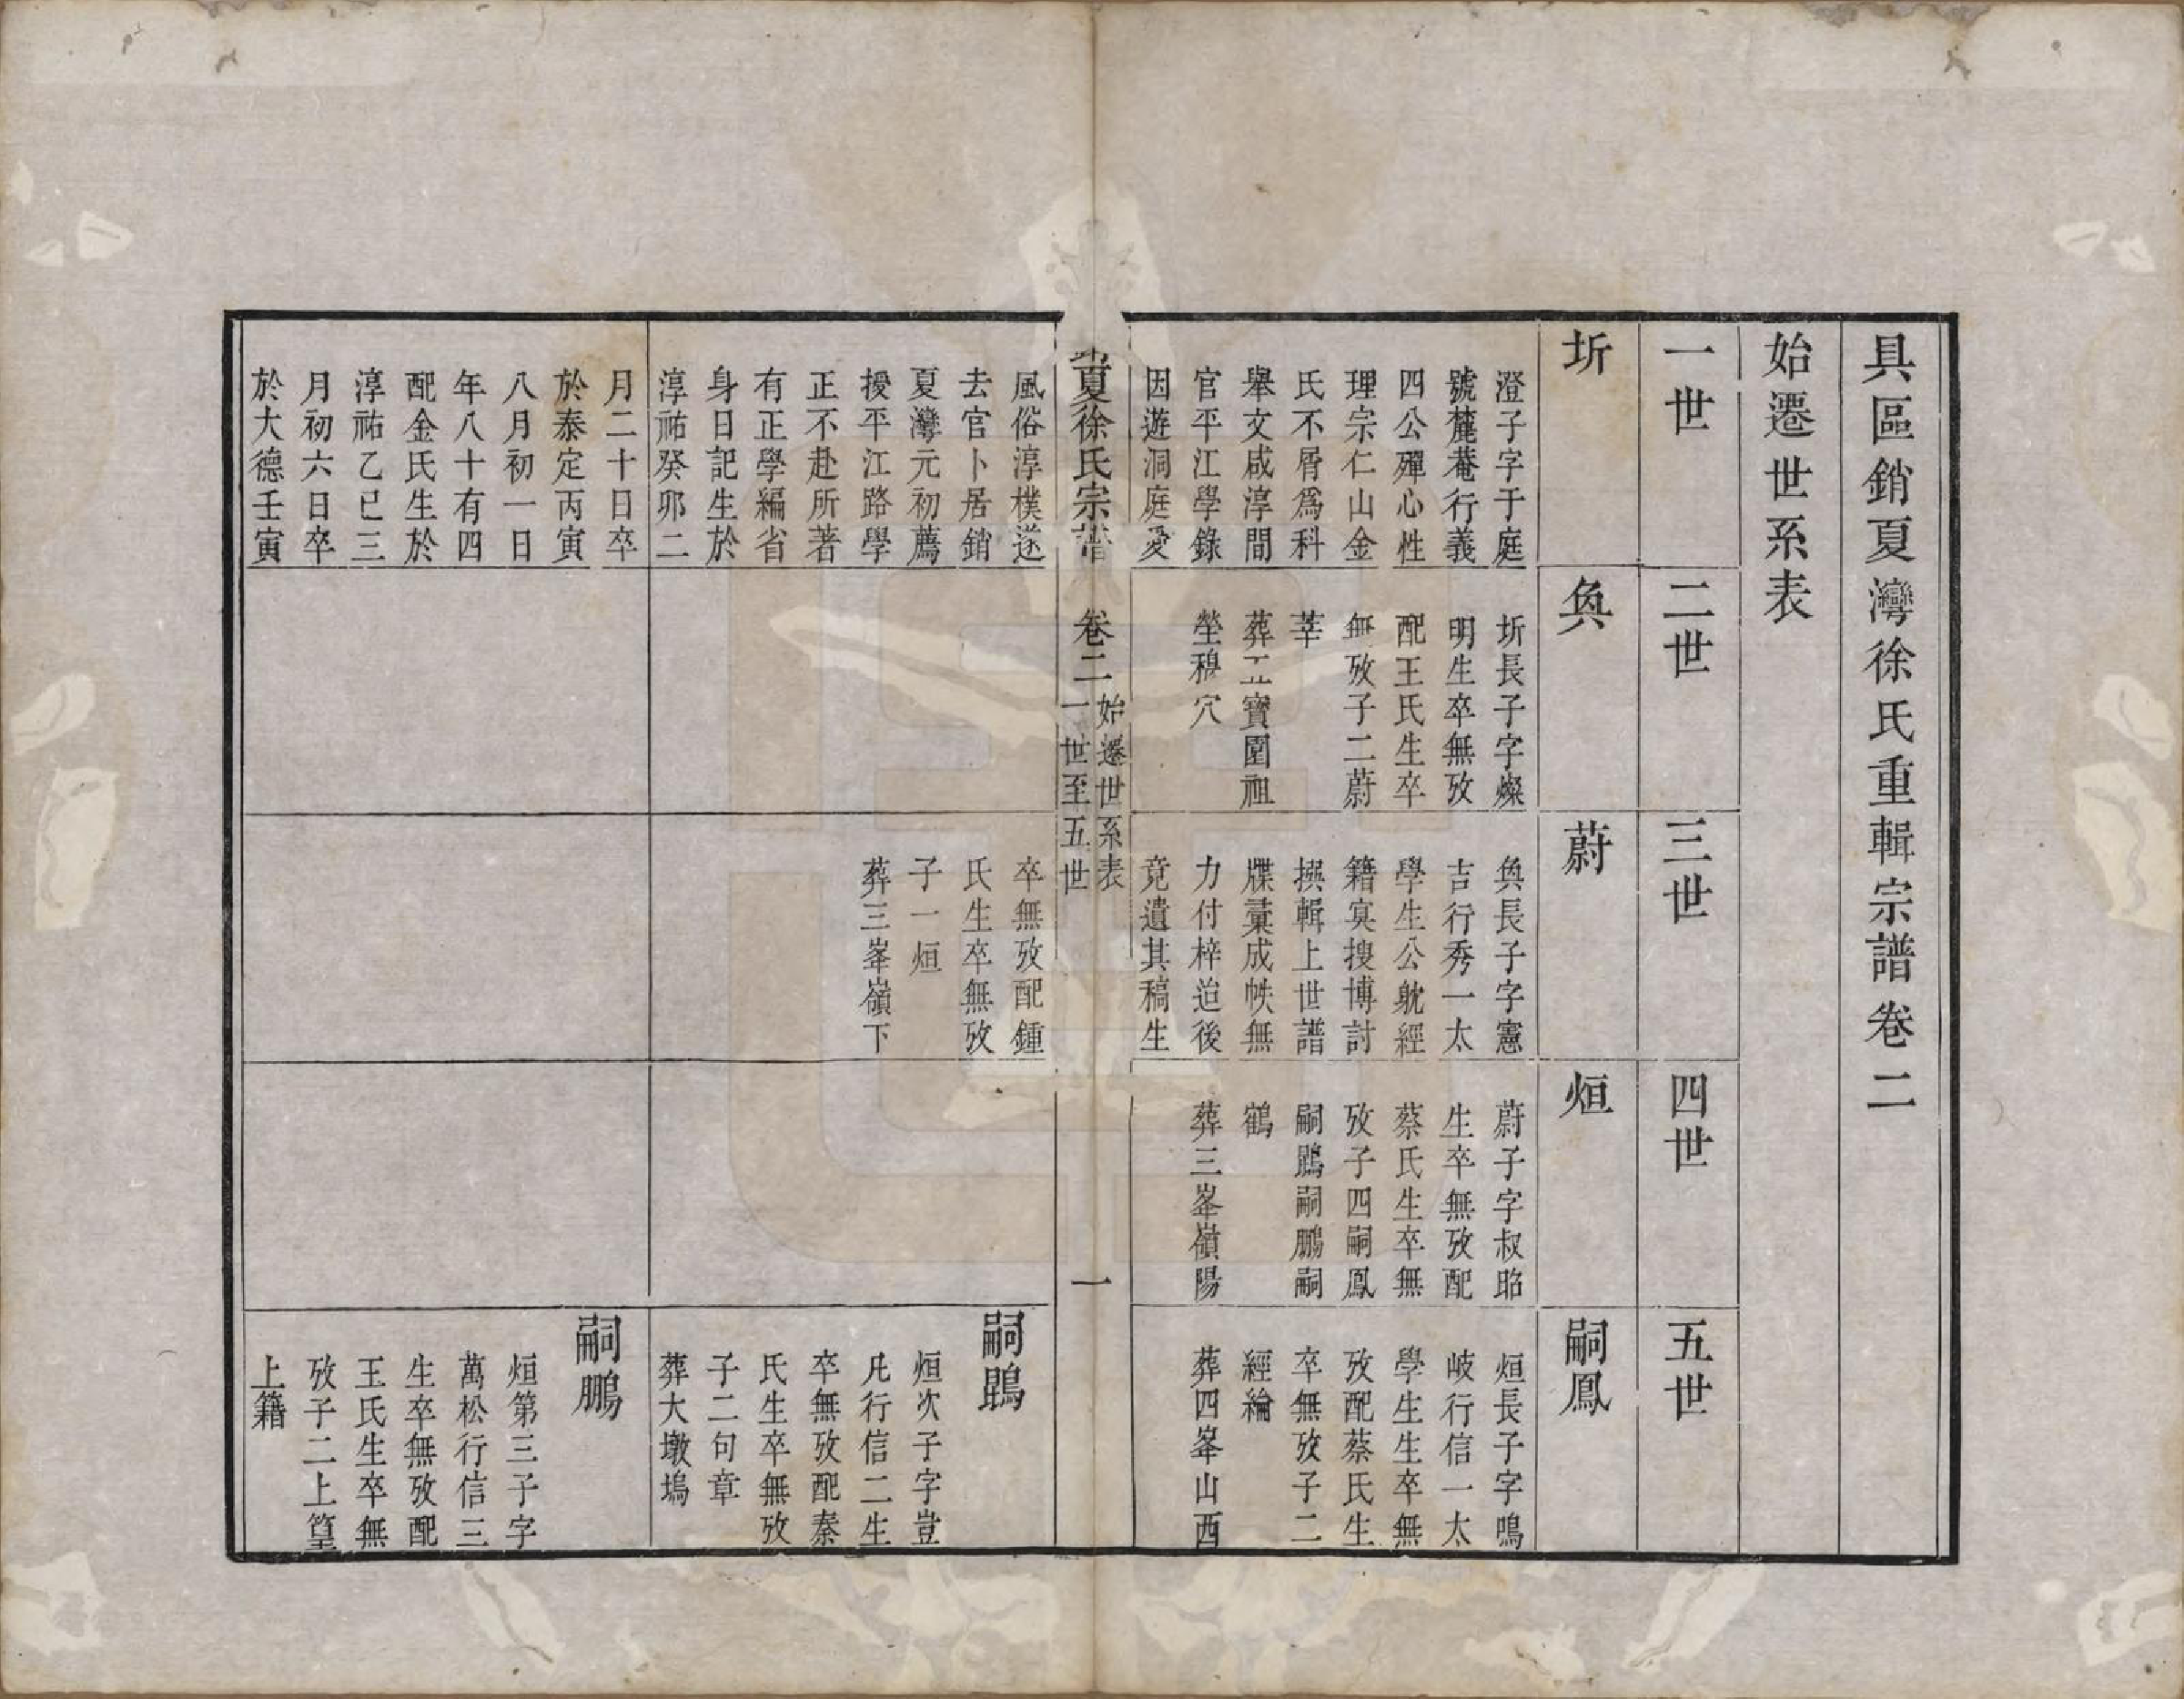 具區銷夏灣徐氏重輯宗譜卷二
始遷世系表
一世
二世
三世
四世
五世
圻
奐
蔚
烜
嗣鳳
澄子字于庭
號麓菴行義
四公殫心性
理宗仁山金
氏不屑爲科
舉文咸淳間
官平江學錄
因遊洞庭愛
圻長子字燦
明生卒無攷
配王氏生卒
無攷子二蔚
莘
葬五寶圍祖
塋穆穴
奐長子字憲
吉行秀一太
學生公躭經
籍寞搜博討
撰輯上世譜
牒彙成帙無
力付梓迨後
竟遺其稿生
蔚子字叔昭
生卒無攷配
蔡氏生卒無
攷子四嗣鳳
嗣鵾嗣鵬嗣
鶴
葬三峯嶺陽
烜長子字鳴
岐行信一太
學生生卒無
攷配蔡氏生
卒無攷子二
經綸
葬四峯山西
夏徐氏宗譜
卷二
始遷世系表
一世至五世
一
風俗淳樸遂
去官卜居銷
夏灣元初薦
授平江路學
正不赴所著
有正學編省
身日記生於
淳祐癸卯二
卒無攷配鍾
氏生卒無攷
子一烜
葬三峯嶺下
嗣鵾
烜次子字豈
凡行信二生
卒無攷配秦
氏生卒無攷
子二句章
葬大墩塢
月二十日卒
於泰定丙寅
八月初一日
年八十有四
配金氏生於
淳祐乙巳三
月初六日卒
於大德壬寅
嗣鵬
烜第三子字
萬松行信三
生卒無攷配
王氏生卒無
攷子二上篁
上籍